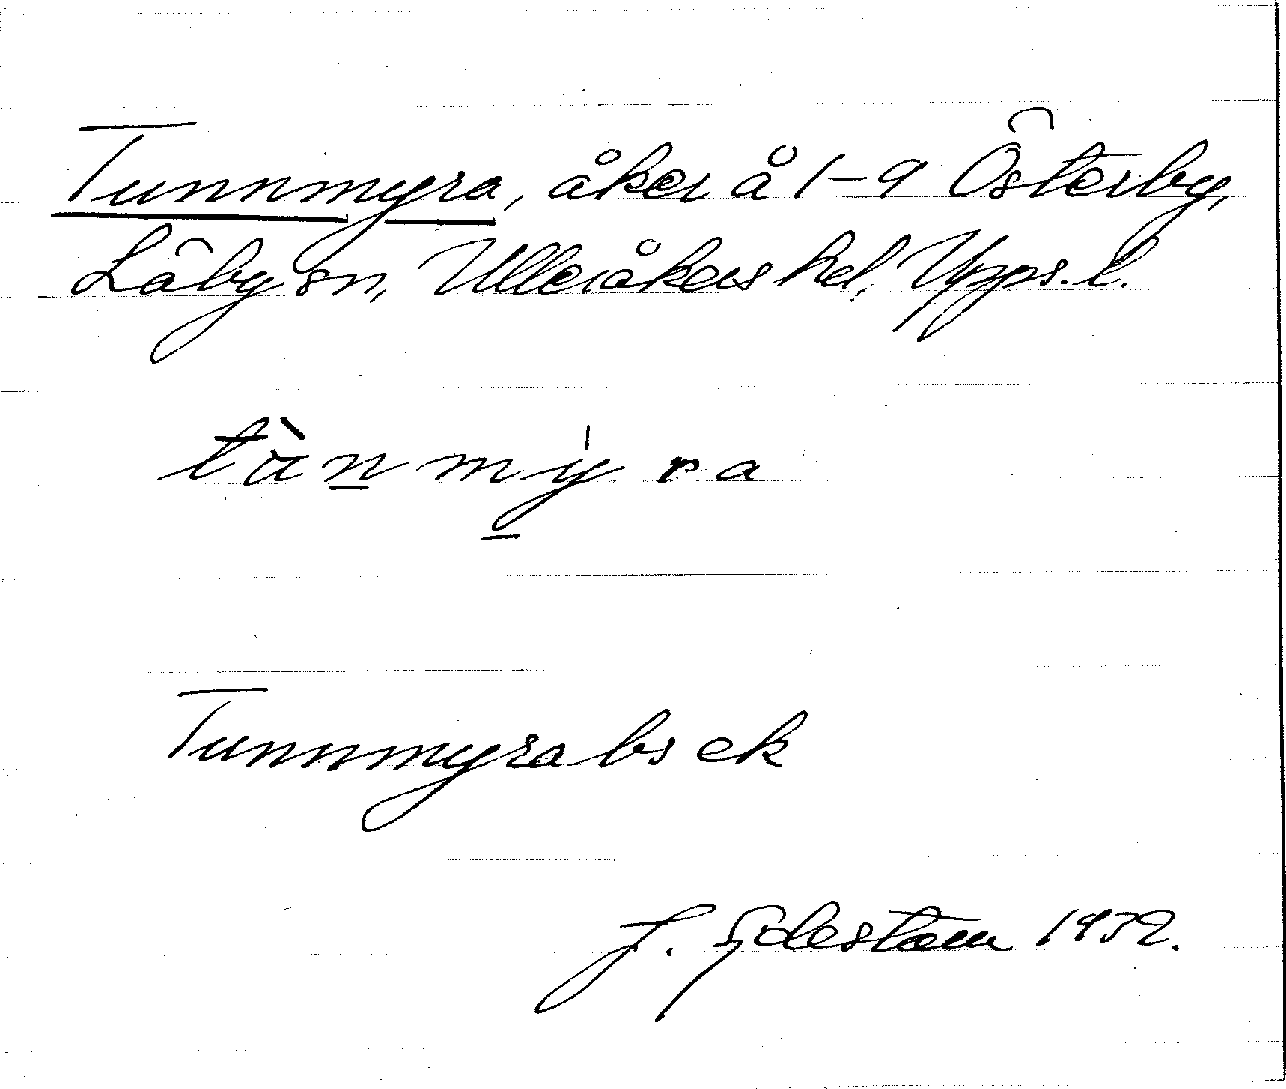 Tunnmyra, åker å 1–9 Österby,
Läby sn, Ulleråkers hd, Upps. l.
tànmy̍ra
Tunnmyrabsek
J. 1952.